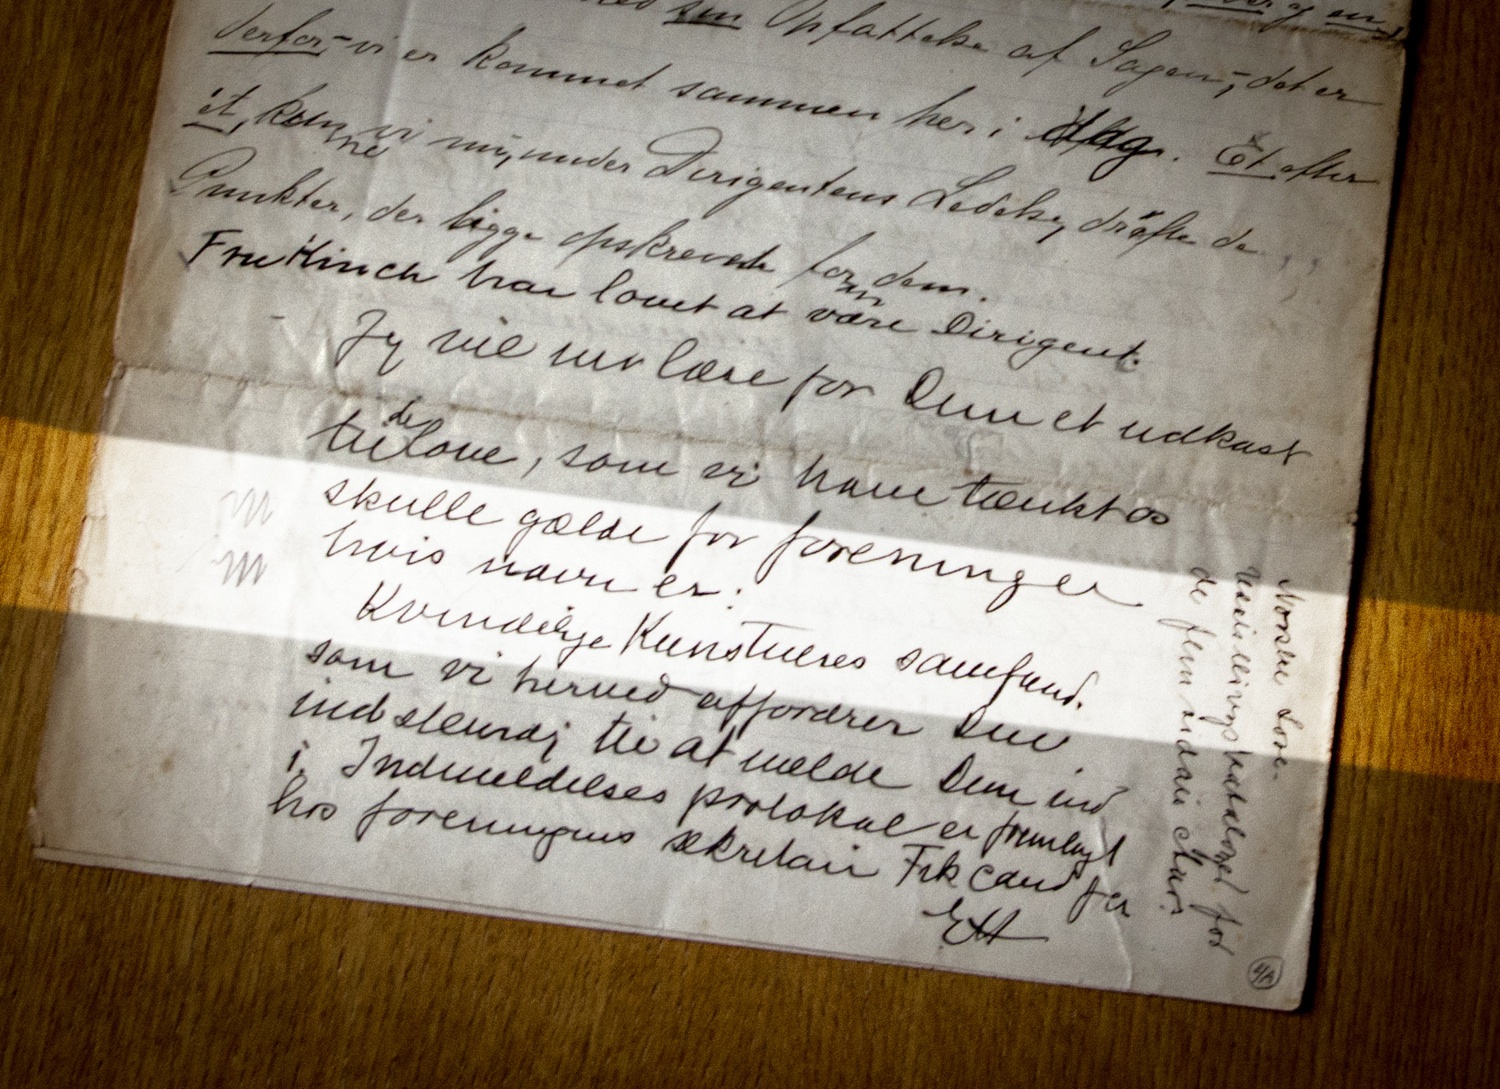 sin Opfattelse af Sagen, – det er
derfor – vi er kommet sammen her i dag. Et efter
et, kunne vi nu, under Dirigentens Ledelse, drøfte de
Punkter, der ligge opskrevede for dem.
Fru Kinch har lovet at være Dirigent.
Jeg vil nu læse for Dem et udkast
til de love, som vi have tænkt os
skulle gælde for foreningen
hvis navn er:
Kvindelige Kunstneres samfund.
som vi herved affordrer Dem
indstændig til at melde Dem ind
i, Indmeldelses protokol er fremlagt
hos foreningens sekretair Frk cand
Norske Love.
Udstillingskatalog for
de
4/A